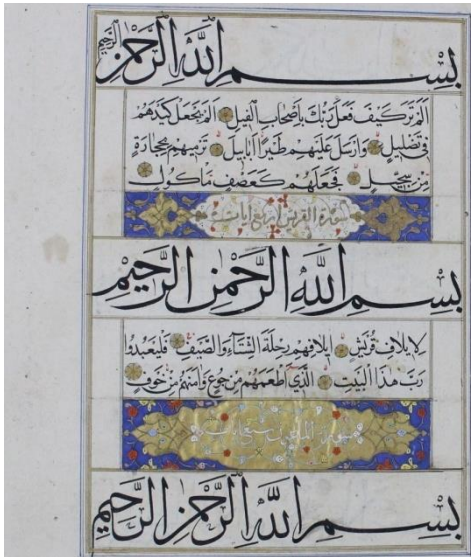 بِسْمِ اللَّهِ الرَّحْمٰنِ الرَّحِيْمِ
اَلَمْ تَرَ كَيْفَ فَعَلَ رَبُّكَ بِاَصْحَابِ الْفِيْلِ اَلَمْ يَجْعَلْ كَيْدَهُمْ
فِي تَضْلِيْلٍ وَاَرْسَلَ عَلَيْهِمْ طَيْرًا اَبَابِيْلَ تَرْمِيْهِمْ بِحِجَارَةٍ
مِنْ سِجِّيْلٍ فَجَعَلَهُمْ كَعَصْفٍ مَاْكُوْلٍ
سورة القريش اربع ايات
بِسْمِ اللَّهِ الرَّحْمٰنِ الرَّحِيْمِ
لِاِيْلَافِ قُرَيْشٍ اِيْلَافِهِمْ رِحْلَةَ الشِّتَاءِ وَالصَّيْفِ فَلْيَعْبُدُوْا
رَبَّ هٰذَا الْبَيْتِ الَّذِيْ اَطْعَمَهُمْ مِنْ جُوْعٍ وَاٰمَنَهُمْ مِنْ خَوْفٍ
بِسْمِ اللَّهِ الرَّحْمٰنِ الرَّحِيْمِ